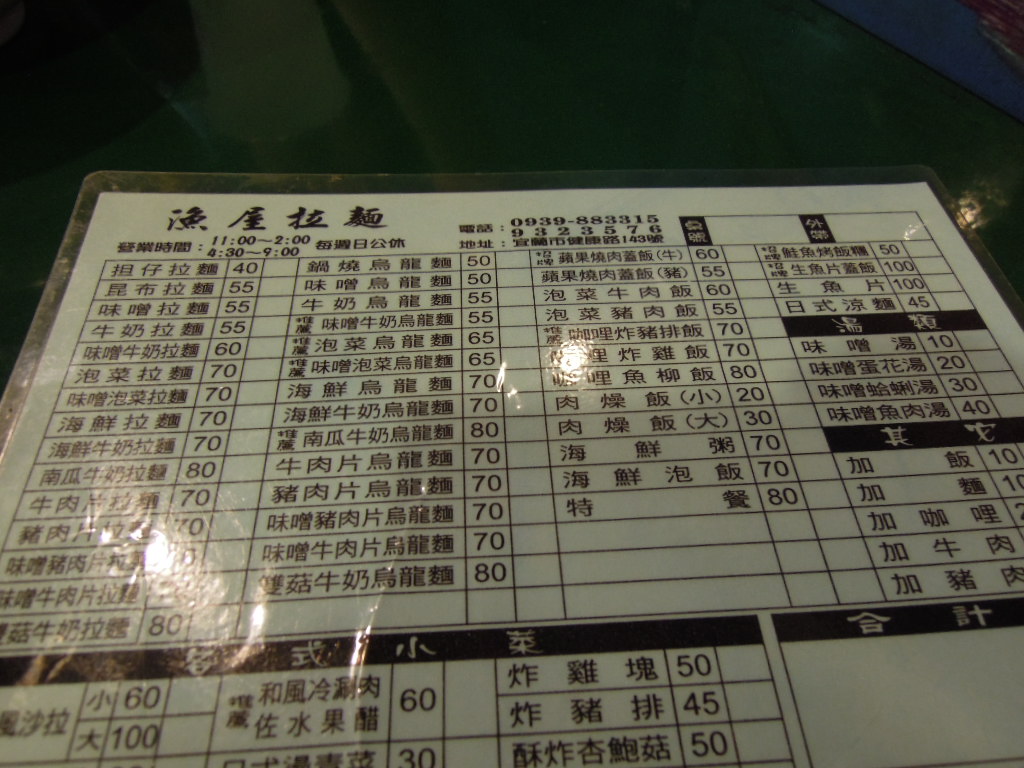 漁屋拉麵
營業時間：11:00～2:00 4:30～9:00 每週日公休
電話：0939-883315 9323576
地址：宜蘭市健康路143號
桌號
外帶
担仔拉麵 40
昆布拉麵 55
味噌拉麵 55
牛奶拉麵 55
味噌牛奶拉麵 60
泡菜拉麵 70
味噌泡菜拉麵 70
海鮮拉麵 70
海鮮牛奶拉麵 70
南瓜牛奶拉麵 80
牛肉片拉麵 70
豬肉片拉麵 70
味噌豬肉片拉
味噌牛肉片拉麵
雙菇牛奶拉麵 80
鍋燒烏龍麵 50
味噌烏龍麵 50
牛奶烏龍麵 55
推薦 味噌牛奶烏龍麵 55
推薦 泡菜烏龍麵 65
推薦 味噌泡菜烏龍麵 65
海鮮烏龍麵 70
海鮮牛奶烏龍麵 70
推薦 南瓜牛奶烏龍麵 80
牛肉片烏龍麵 70
豬肉片烏龍麵 70
味噌豬肉片烏龍麵 70
味噌牛肉片烏龍麵 70
雙菇牛奶烏龍麵 80
招牌 蘋果燒肉蓋飯(牛) 60
蘋果燒肉蓋飯(豬) 55
泡菜牛肉飯 60
泡菜豬肉飯 55
推薦 咖哩炸豬排飯 70
哩炸雞飯 70
咖哩魚柳飯 80
肉燥飯(小) 20
肉燥飯(大) 30
海鮮粥 70
海鮮泡飯 70
特餐 80
招牌 鮭魚烤飯糰 50
招牌 生魚片蓋飯 100
生魚片 100
日式涼麵 45
湯類
味噌湯 10
味噌蛋花湯 20
味噌蛤蜊湯 30
味噌魚肉湯 40
其它
加飯 10
加麵 10
加咖哩 2
加牛肉
加豬肉
合計
式小菜
風沙拉 小 60
大 100
推薦 和風冷涮肉佐水果醋 60
日式燙青菜 30
炸雞塊 50
炸豬排 45
酥炸杏鮑菇 50